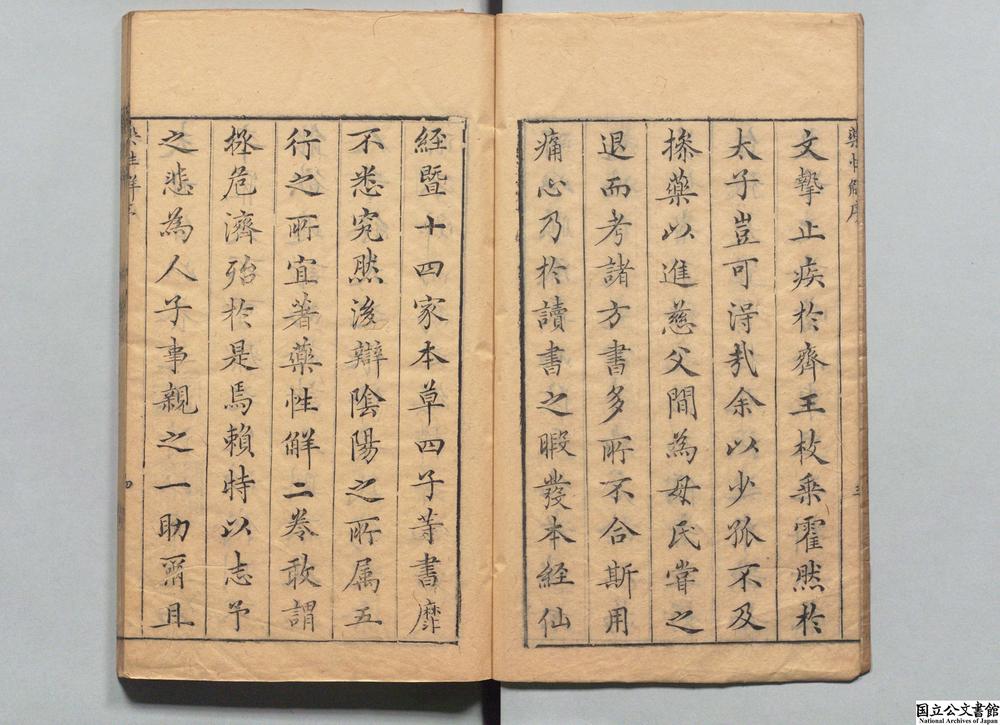 文摯止疾於齊王枚乘霍然於
太子豈可淂㢤余以少孤不及
摻藥以進慈父間為母氏甞之
退而考諸方書多所不合斯用
痛心乃於讀書之暇發本經仙
經暨十四家本草四子等書靡
不悉究然後辯陰陽之所属五
行之所宜著藥性觧二卷敢謂
拯危濟殆於是焉賴特以志予
之悲為人子事親之一助爾且
四
国立公文書館
National Archives of Japan